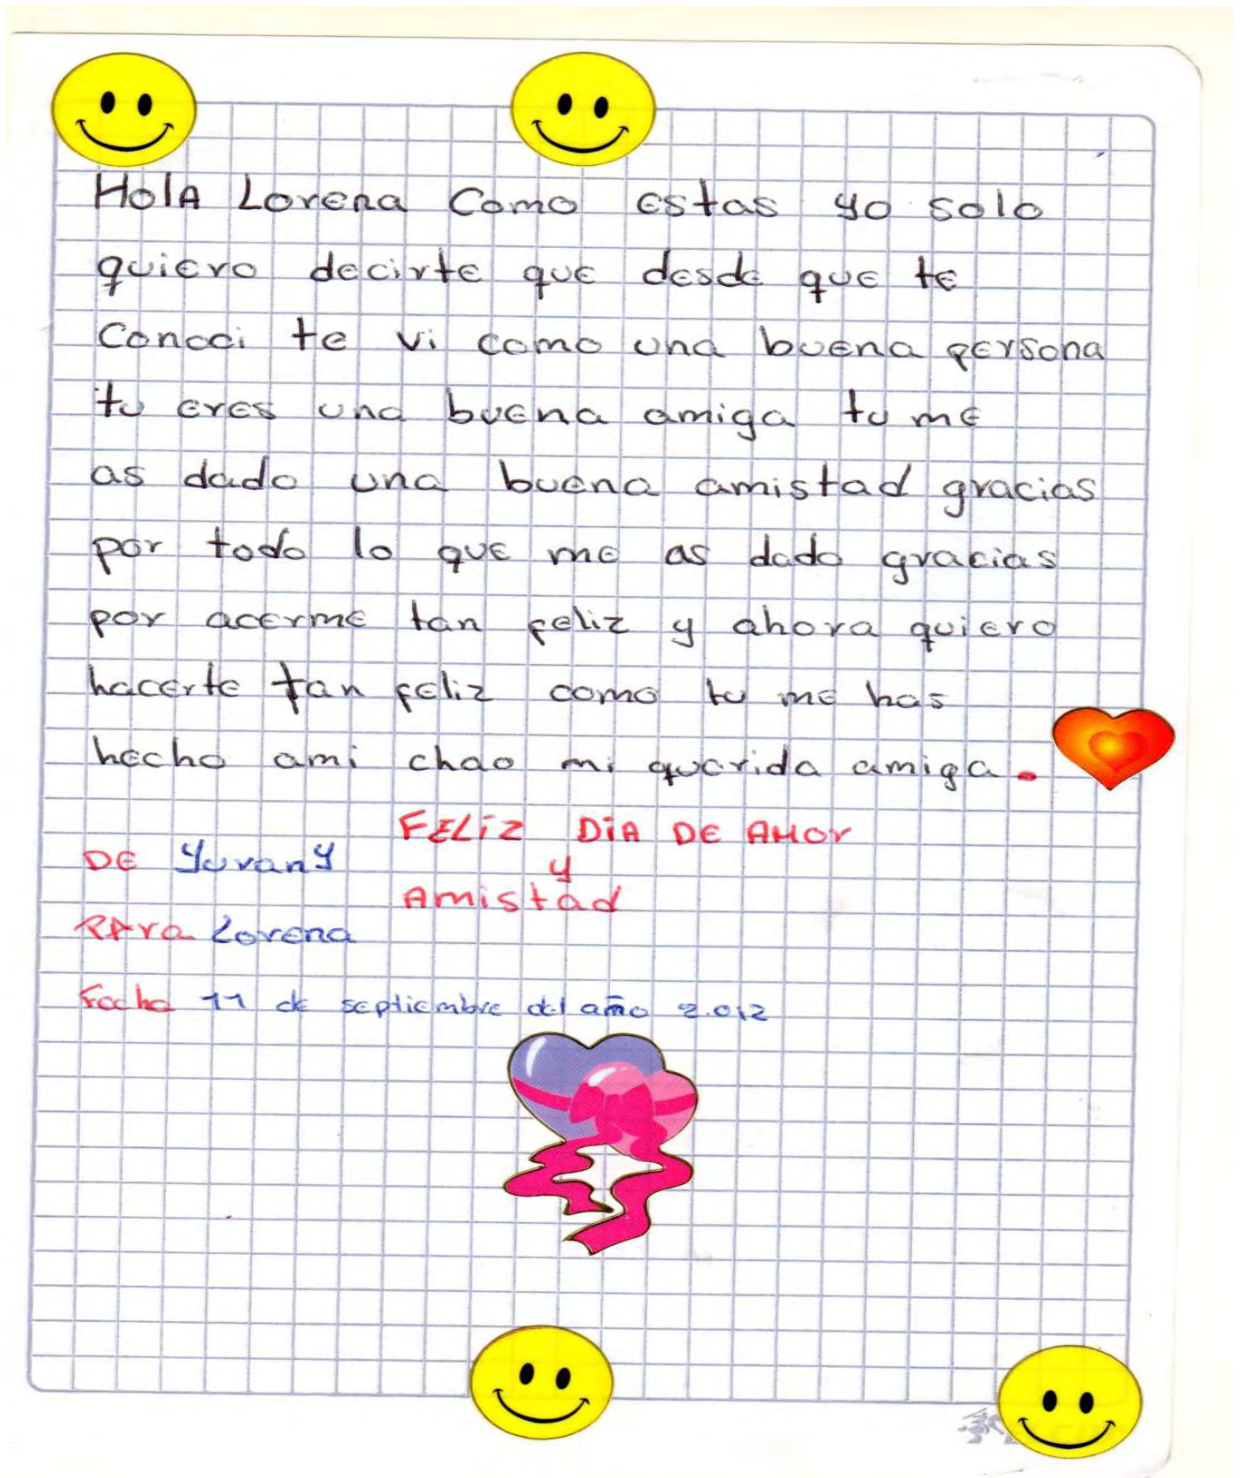 HolA Lorena Como estas yo solo
quiero decirte que desde que te
Conoci te vi como una buena persona
tu eres una buena amiga tu me
as dado una buena amistad gracias
por todo lo que me as dado gracias
por acerme tan feliz y ahora quiero
hacerte tan feliz como tu me has
hecho ami chao mi querida amiga.
FELiZ DiA DE AMOr
DE YuranY y
Amistad
PAra Lorena
Fecha 11 de septiembre del año 2.012